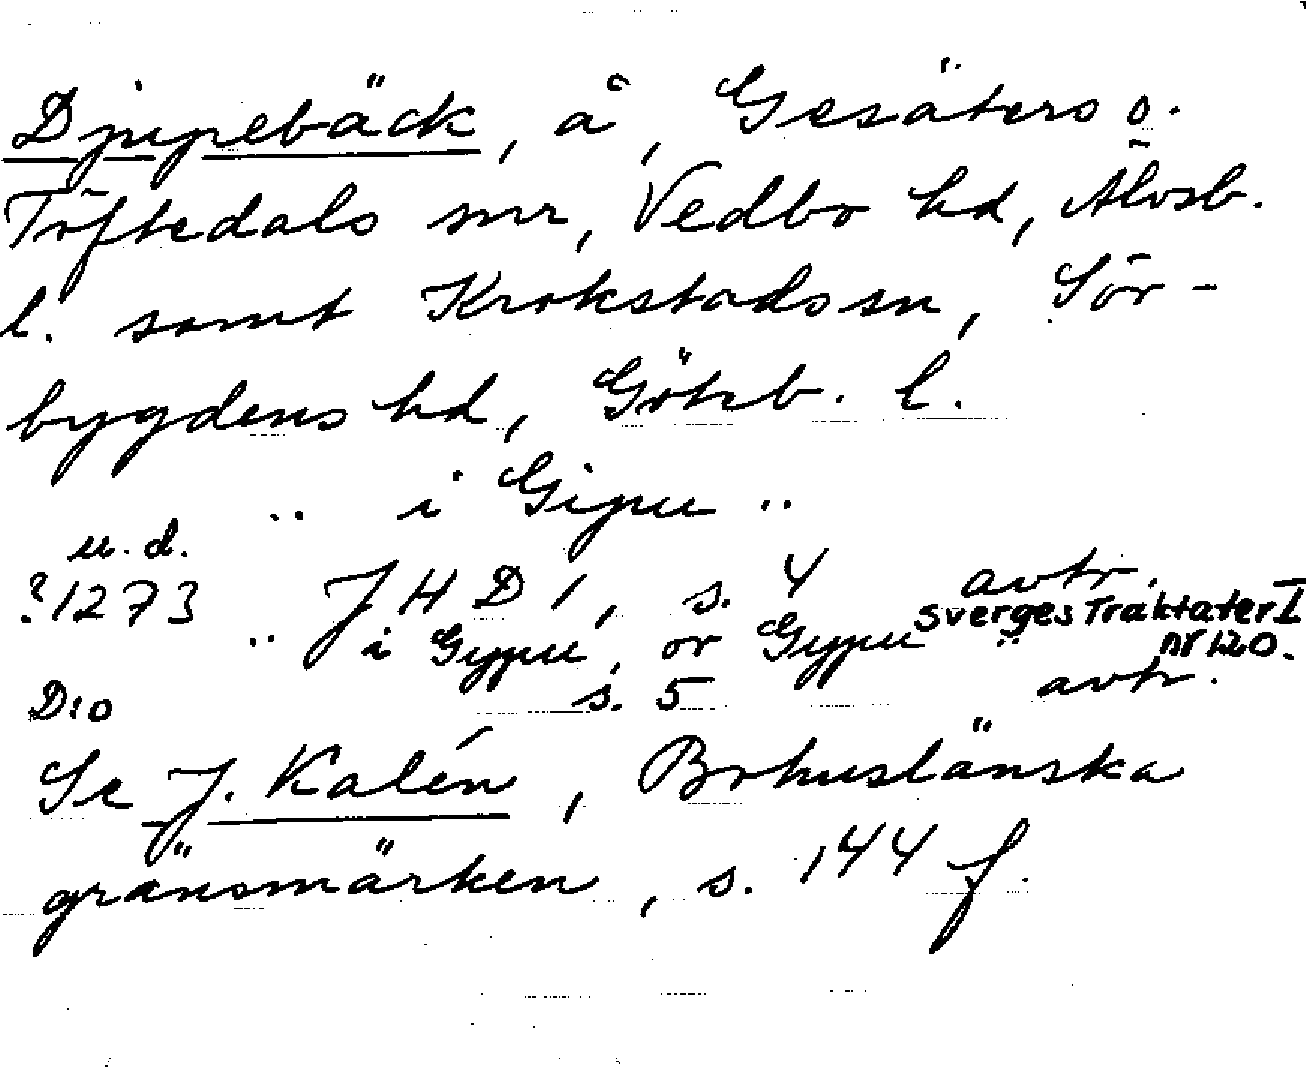 Djupebäck, å, Gesäters o.
Töftedals snr, Vedbo hd, Älvsb.
l. samt Krokstads sn, Sör-
bygdens hd, Göteb. l.
.. i Gipu ..
u. d.
?1273 JHD 1, s. 4 avtr.
Sverges Traktater I
nr 120.
.. i Gypu, or Gypu ..
D:o s. 5 avtr.
Se J. Kalén, Bohuslänska
gränsmärken, s. 144 f.